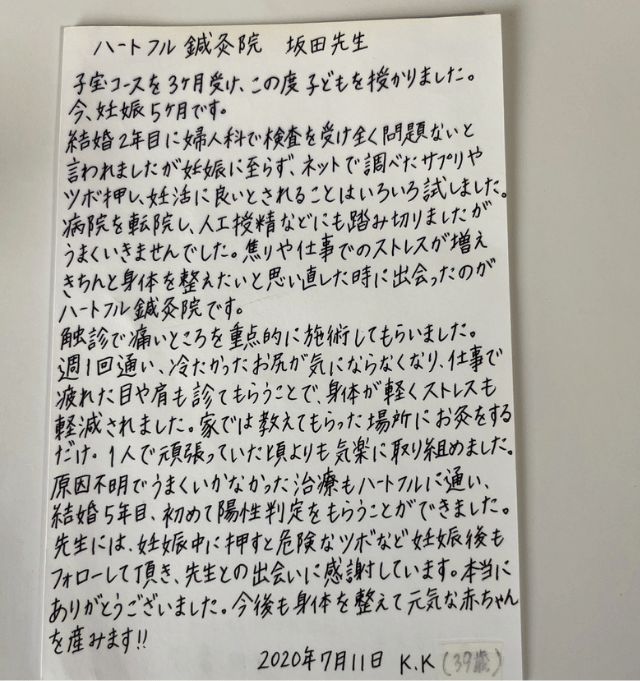 ハートフル鍼灸院 坂田先生
子宝コースを3ケ月受け、この度子どもを授かりました。
今、妊娠5ケ月です。
結婚2年目に婦人科で検査を受け全く問題ないと
言われましたが妊娠に至らず、ネットで調べたサプリや
ツボ押し、妊活に良いとされることはいろいろ試しました。
病院を転院し、人工授精などにも踏み切りましたが
うまくいきませんでした。焦りや仕事でのストレスが増え
きちんと身体を整えたいと思い直した時に出会ったのが
ハートフル鍼灸院です。
触診で痛いところを重点的に施術してもらいました。
週1回通い、冷たかったお尻が気にならなくなり、仕事で
疲れた目や肩も診てもらうことで、身体が軽くストレスも
軽減されました。家では教えてもらった場所にお灸をする
だけ。1人で頑張っていた頃よりも気楽に取り組めました。
原因不明でうまくいかなかった治療もハートフルに通い、
結婚5年目、初めて陽性判定をもらうことができました。
先生には、妊娠中に押すと危険なツボなど妊娠後も
フォローして頂き、先生との出会いに感謝しています。本当に
ありがとうございました。今後も身体を整えて元気な赤ちゃん
を産みます!!
2020年7月11日 K.K (39歳)